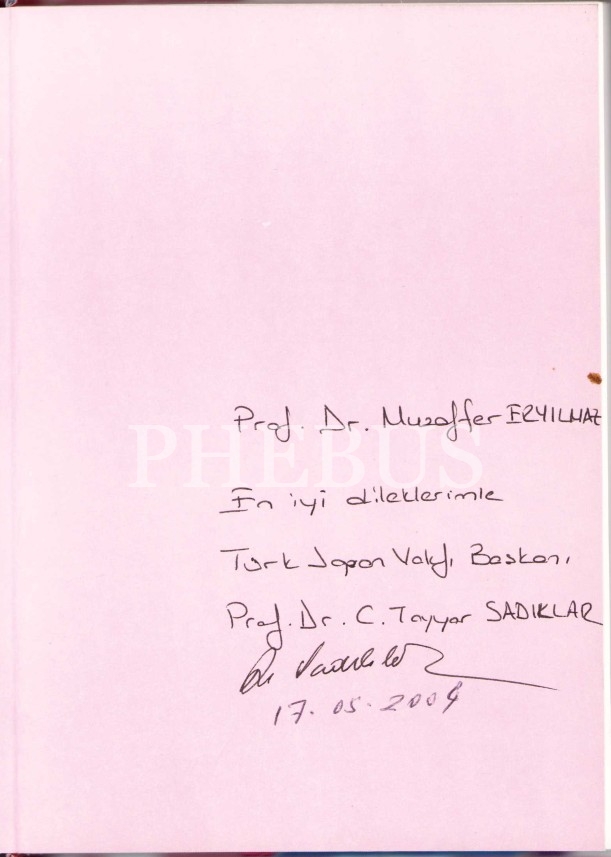 Prof. Dr. Muzaffer ERYILMAZ
PHEBUS
En iyi dileklerimle
Türk Japon Vakfı Başkanı
Prof. Dr. C. Tayyar SADIKLAR
17.05.2004